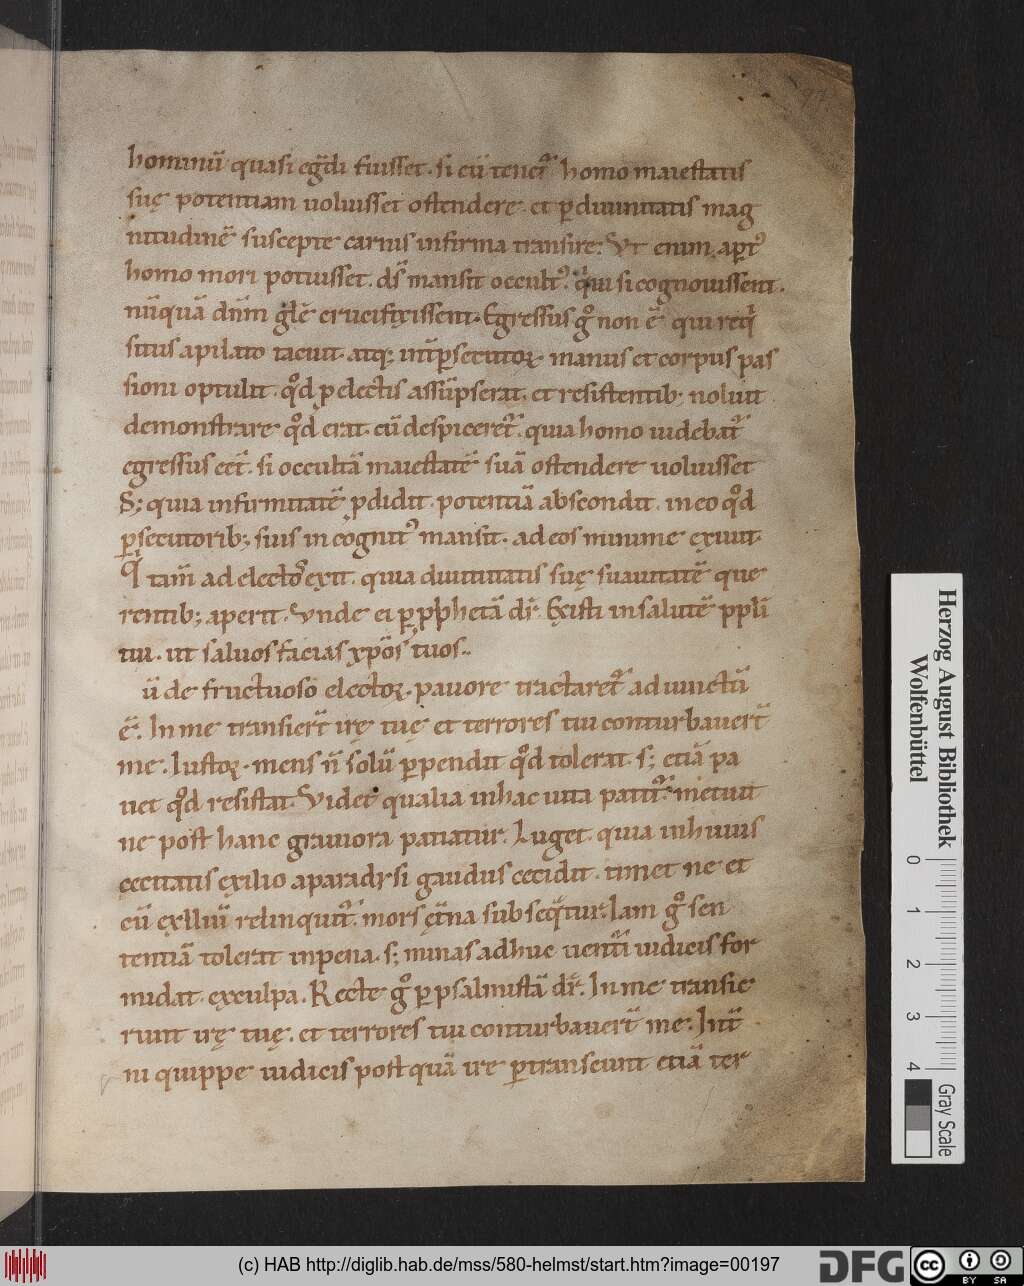 97
hominū quasi egr̄di fuisset. si cū tener̄ homo maiestatis
suę potentiam uoluisset ostendere. et ꝑ diuinitatis mag
nitudinē suscepte carnis infirma transire. Ut enim apt᷒
homo mori potuisset. ds̄ mansit occult᷒. qͥui si cognouissent.
nūquā dn̄m glē crucifixissent. Egressus gͦ non ē. qui req̇
situs a pilato tacuit. atq; int̄ ꝑsecutoꝝ manus et corpus pas
sioni optulit. qͦd ꝓ electis assūpserat. et resistentib; noluit
demonstrare qͦd erat. cū despiceret᷒. quia homo uidebat᷒
egressus eēt. si occultā maiestatē suā ostendere uoluisset
S; quia infirmitatē ꝓdidit. potentiā abscondit. in eo qͦd
ꝑsecutorib; suis incognit᷒ mansit. ad eos minime exiuit.
Qͥ tam̄ ad electos exit. quia diuinitatis suę suauitatē que
rentib; aperit. Unde ei ꝑ ꝓphetā dr̄. Existi in salutē ppli
tui. ut saluos facias xp̄os tuos..
ū de fructuoso electoꝝ pauore tractaret᷒ adiunctū
ē. In me transier̄t irę tuę et terrores tui conturbauer̄t
me. Iustoꝝ mens n̄ solū ꝑpendit qͦd tolerat. s; etiā pa
uet qͦd restat. Videt qualia in hac uita patit᷒. metuit
ne post hanc grauiora patiatur. Luget quia in huius
cecitatis exilio a paradysi gaudiis cecidit. timet ne et
cū exiliū relinquit᷒. mors et̄na subsequt̄ur. Iam gͦ sen
tentiā tolerat in pena. s; minas adhuc uent̄i iudicis for
midat ex culpa. Recte gͦ ꝑ psalmistā dr̄. In me transie
runt irę tuę. et terrores tui conturbauer̄t me. Int̄
ni quippe iudicis post quā ire ꝑtranseunt etiā ter
Herzog August Bibliothek
Wolfenbüttel
0 1 2 3 4
Gray Scale
(c) HAB http://diglib.hab.de/mss/580-helmst/start.htm?image=00197
DFG
cc BY SA